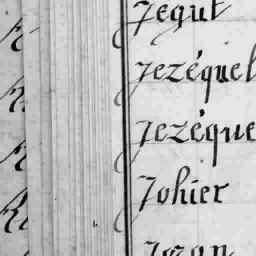 Jégut
Jezéquel
Jezéque
Johier